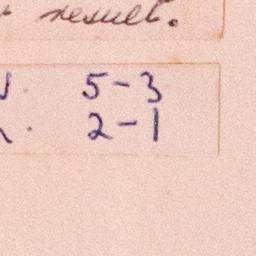 result.
5-3
2-1